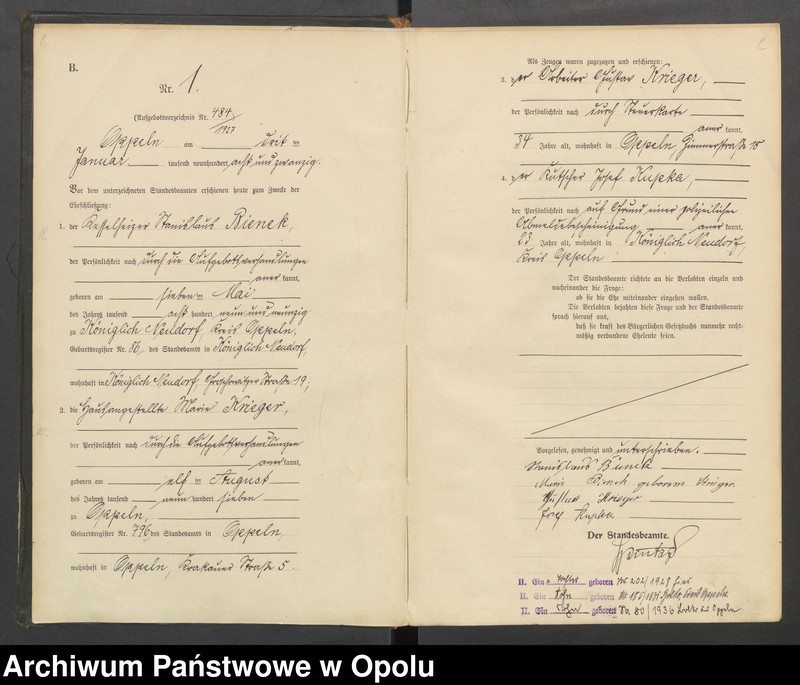 B.
Nr. 1.
(Aufgebotsverzeichnis Nr. 484/1927
Oppeln am dritten
Januar tausend neunhundert acht und zwanzig.
Vor dem unterzeichneten Standesbeamten erschienen heute zum Zwecke der
Eheschließung:
1. der Kesselheizer Stanislaus Bienek,
der Persönlichkeit nach durch die Aufgebotsverhandlungen
anerkannt,
geboren am sieben ten Mai
des Jahres tausend acht hundert neun und neunzig
zu Königlich Neudorf, Kreis Oppeln,
Geburtsregister Nr. 86, des Standesamts in Königlich Neudorf,
wohnhaft in Königlich Neudorf, Straße 19;
2. die Hausangestellte Marie Krieger,
der Persönlichkeit nach durch die Aufgebotsverhandlungen
anerkannt,
geboren am elf ten August
des Jahres tausend neun hundert sieben
zu Oppeln,
Geburtsregister Nr. 796, des Standesamts in Oppeln,
wohnhaft in Oppeln, Krakauer Straße 5.
Als Zeugen waren zugezogen und erschienen:
3. der Arbeiter Gustav Krieger,
der Persönlichkeit nach durch Steuerkarte
anerkannt,
34 Jahre alt, wohnhaft in Oppeln, Zimmerstraße 10
4. der Kutscher Josef Kupka,
der Persönlichkeit nach auf Grund einer polizeilichen
Abmeldebescheinigung anerkannt,
23 Jahre alt, wohnhaft in Königlich Neudorf,
Kreis Oppeln
Der Standesbeamte richtete an die Verlobten einzeln und
nacheinander die Frage:
ob sie die Ehe miteinander eingehen wollen.
Die Verlobten bejahten diese Frage und der Standesbeamte
sprach hierauf aus,
daß sie kraft des Bürgerlichen Gesetzbuchs nunmehr recht-
mäßig verbundene Eheleute seien.
Vorgelesen, genehmigt und unterschrieben.
Stanislaus Bienek
Marie Bienek geborene Krieger.
Gustav Krieger
Josef Kupka
Der Standesbeamte.
II. Ein Tochter geboren Nr 202/1928 hier
II. Ein Sohn geboren Nr.
II. Ein Sohn geboren No 80/1936
Archiwum Państwowe w Opolu